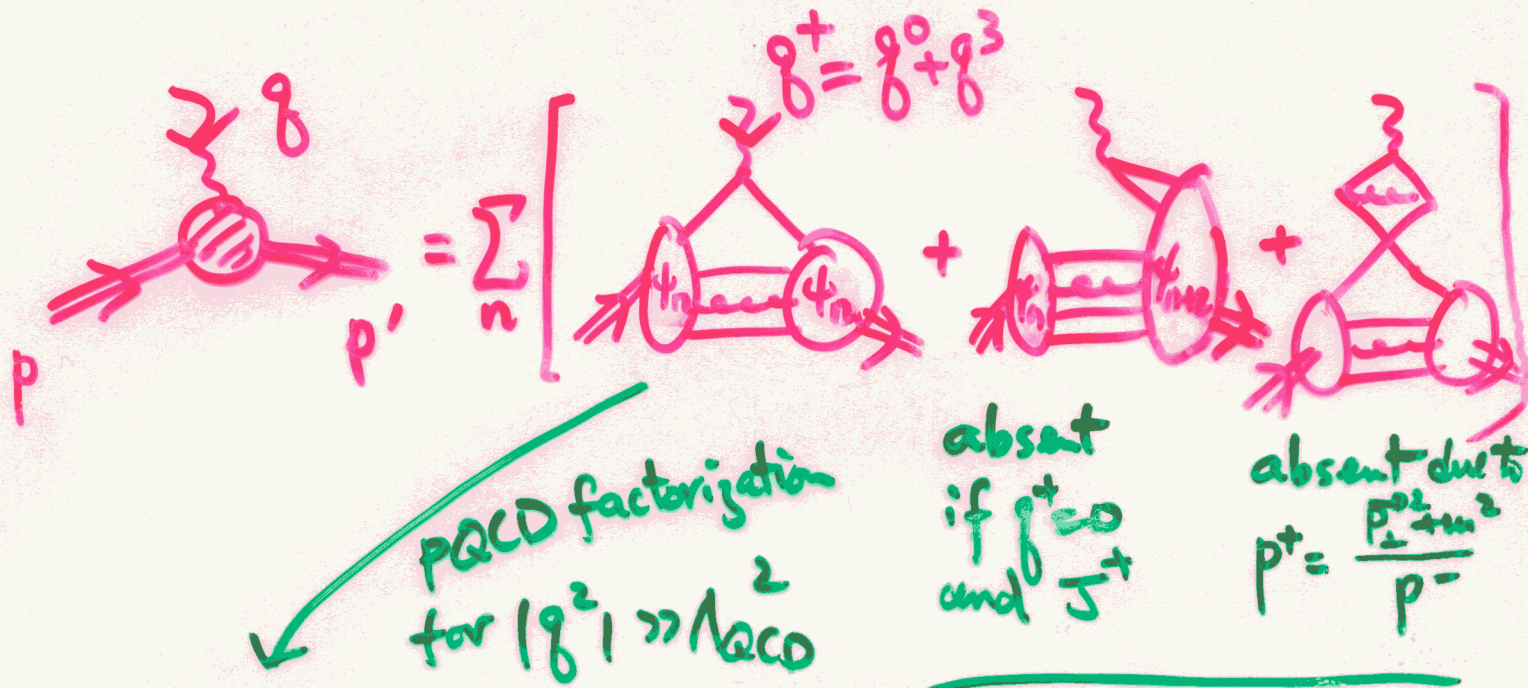 q⁺ = q⁰ + q³
q
p
p'
= Σ
n
[
ψₙ
ψₙ
+
ψₙ
ψₙ₊₂
+
]
pQCD factorization
for |q²| >> Λ²QCD
absent
if q⁺=0
and J⁺
absent due to
p⁺ = (p⊥² + m²) / p⁻